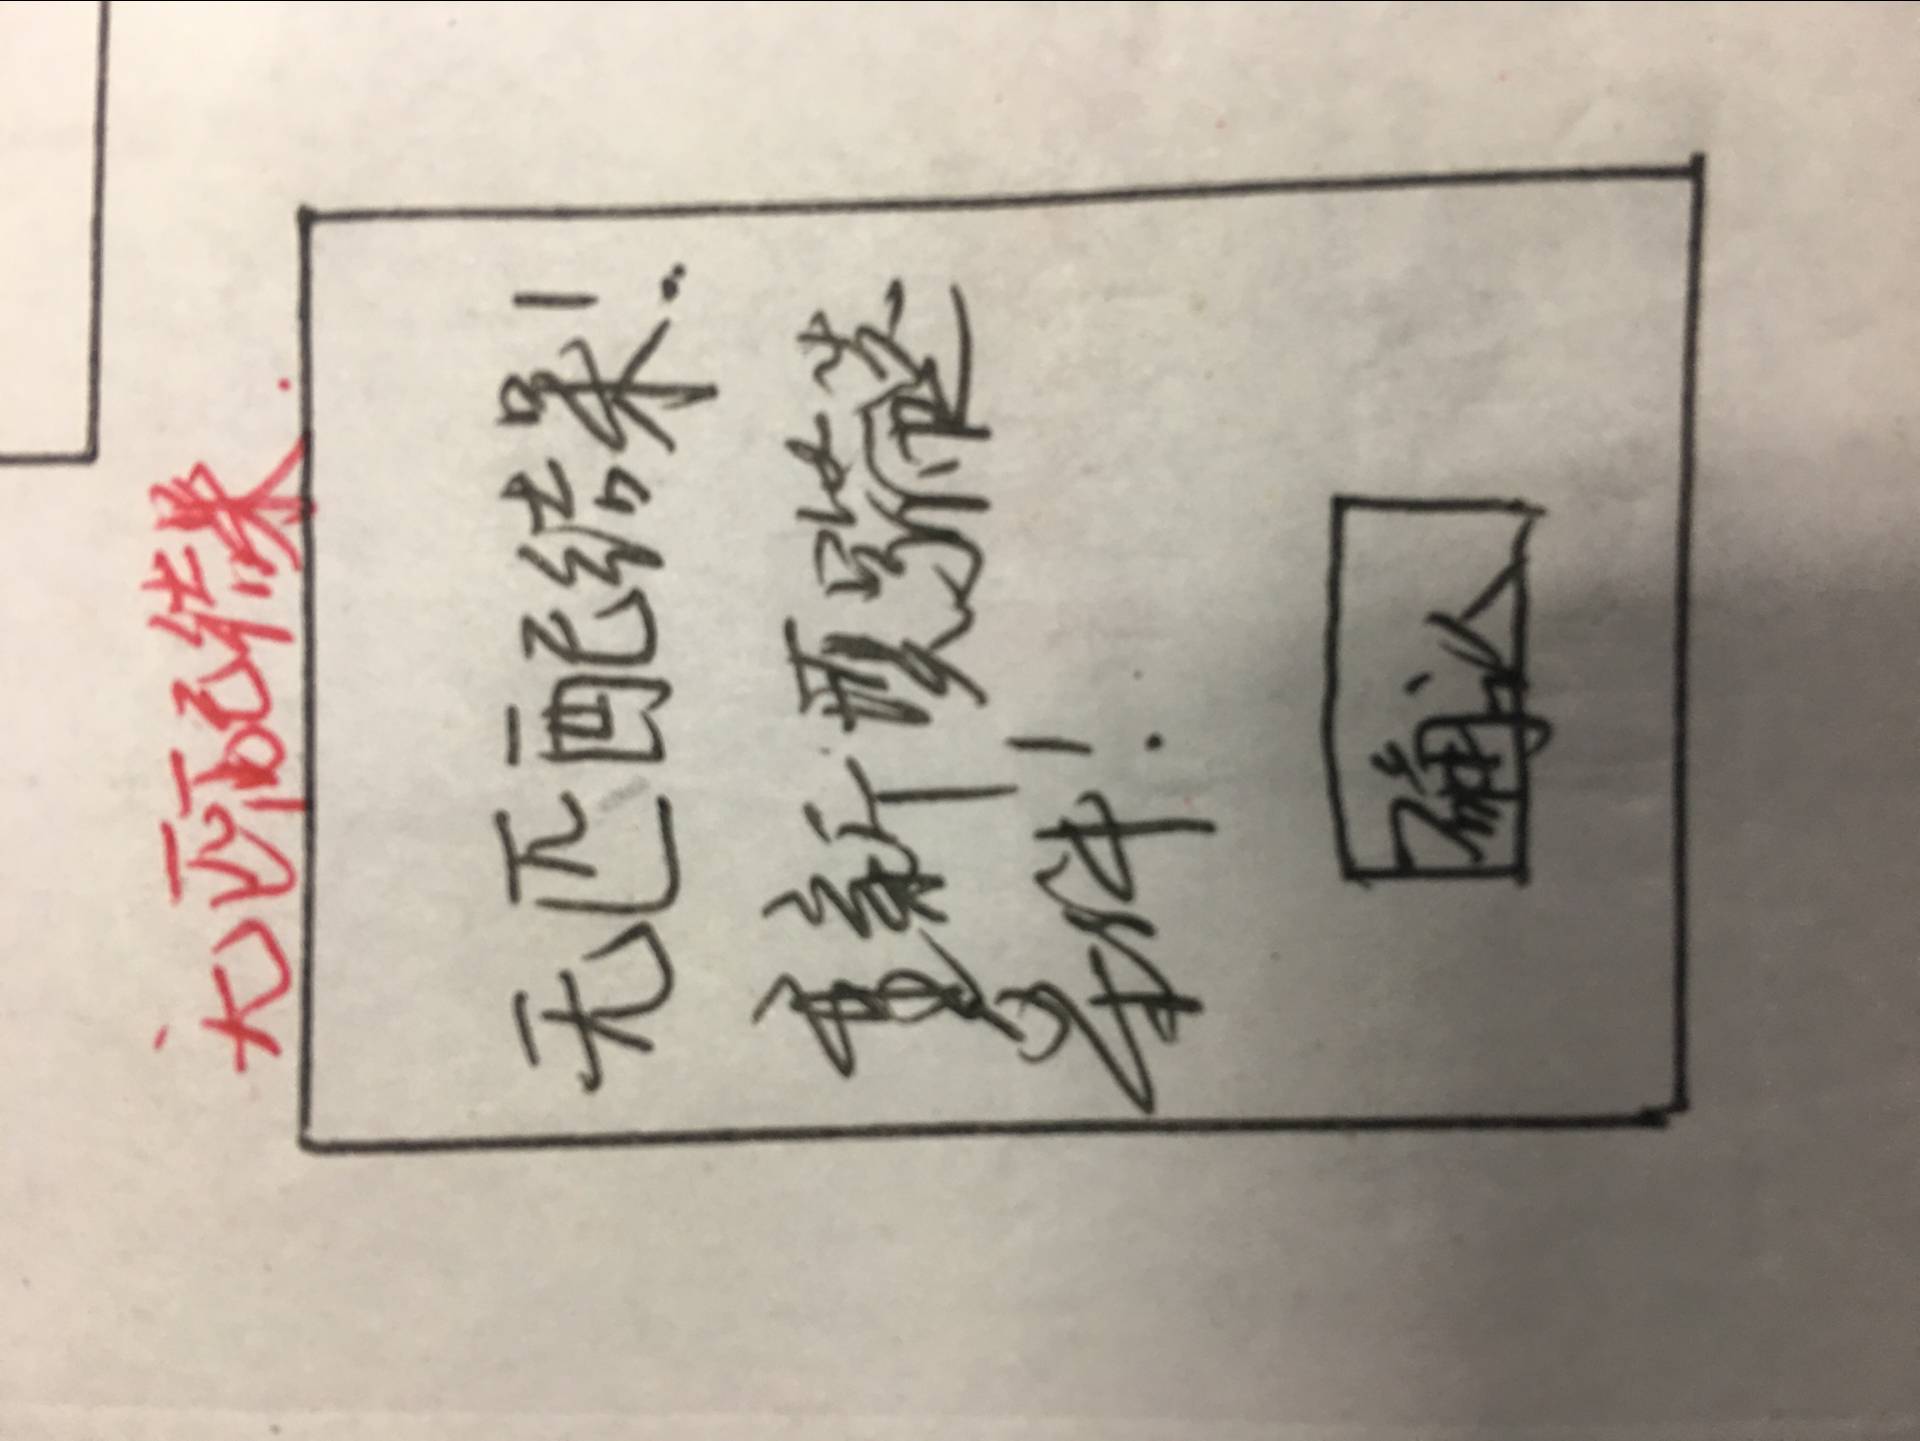 无匹配结果.
无匹配结果!
重新要写筛选
条件!
确认